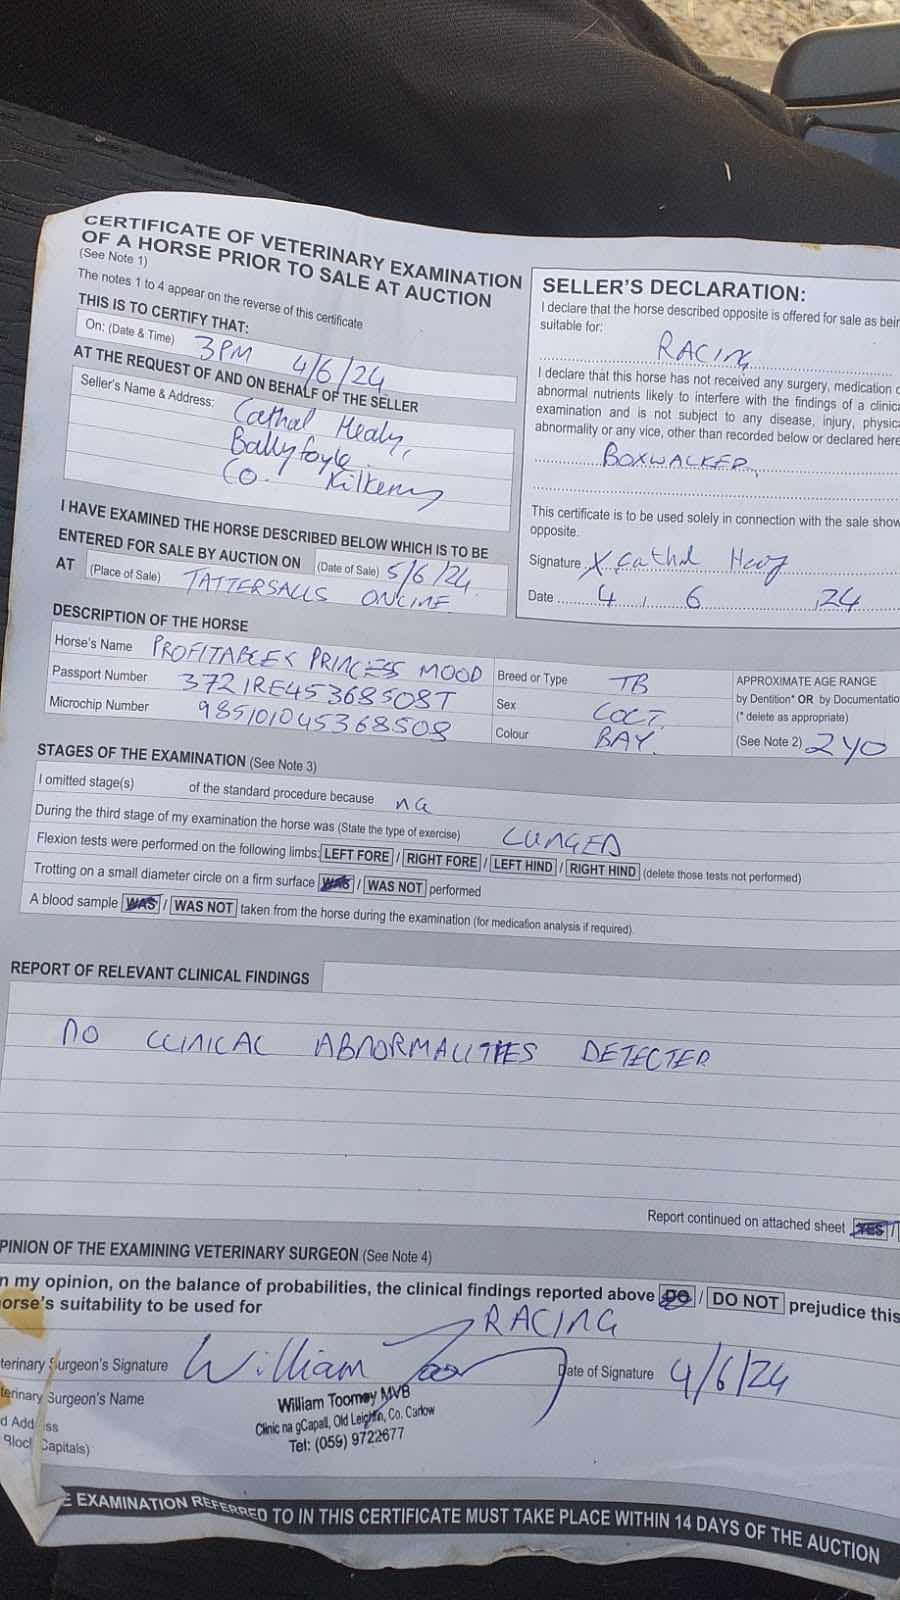 CERTIFICATE OF VETERINARY EXAMINATION
OF A HORSE PRIOR TO SALE AT AUCTION
(See Note 1)
The notes 1 to 4 appear on the reverse of this certificate
THIS IS TO CERTIFY THAT:
On: (Date & Time) 3PM 4/6/24
AT THE REQUEST OF AND ON BEHALF OF THE SELLER
Seller's Name & Address: Cathal Healy,
Ballyfoyle
Co. Kilkenny
I HAVE EXAMINED THE HORSE DESCRIBED BELOW WHICH IS TO BE
ENTERED FOR SALE BY AUCTION ON (Date of Sale) 5/6/24.
AT (Place of Sale) TATTERSALLS ONLINE
SELLER'S DECLARATION:
I declare that the horse described opposite is offered for sale as bein
suitable for:
RACING
I declare that this horse has not received any surgery, medication o
abnormal nutrients likely to interfere with the findings of a clinica
examination and is not subject to any disease, injury, physica
abnormality or any vice, other than recorded below or declared here
BOXWALKER
This certificate is to be used solely in connection with the sale show
opposite.
Signature X Cathal Healy
Date 4 . 6 . 24
DESCRIPTION OF THE HORSE
Horse's Name PROFITABLE X PRINCESS MOOD
Passport Number 372IRE45368508T
Microchip Number 985101045368508
Breed or Type TB
Sex COLT
Colour BAY.
APPROXIMATE AGE RANGE
by Dentition* OR by Documentatio
(* delete as appropriate)
(See Note 2) 2YO
STAGES OF THE EXAMINATION (See Note 3)
I omitted stage(s) of the standard procedure because na
During the third stage of my examination the horse was (State the type of exercise) LUNGED
Flexion tests were performed on the following limbs: LEFT FORE / RIGHT FORE / LEFT HIND / RIGHT HIND (delete those tests not performed)
Trotting on a small diameter circle on a firm surface WAS / WAS NOT performed
A blood sample WAS / WAS NOT taken from the horse during the examination (for medication analysis if required).
REPORT OF RELEVANT CLINICAL FINDINGS
NO CLINICAL ABNORMALITIES DETECTED
Report continued on attached sheet YES /
PINION OF THE EXAMINING VETERINARY SURGEON (See Note 4)
n my opinion, on the balance of probabilities, the clinical findings reported above DO / DO NOT prejudice this
orse's suitability to be used for RACING
terinary Surgeon's Signature William Toomey Date of Signature 4/6/24
terinary Surgeon's Name
d Address
Block Capitals)
William Toomey MVB
Clinic na gCapall, Old Leighlin, Co. Carlow
Tel: (059) 9722677
E EXAMINATION REFERRED TO IN THIS CERTIFICATE MUST TAKE PLACE WITHIN 14 DAYS OF THE AUCTION